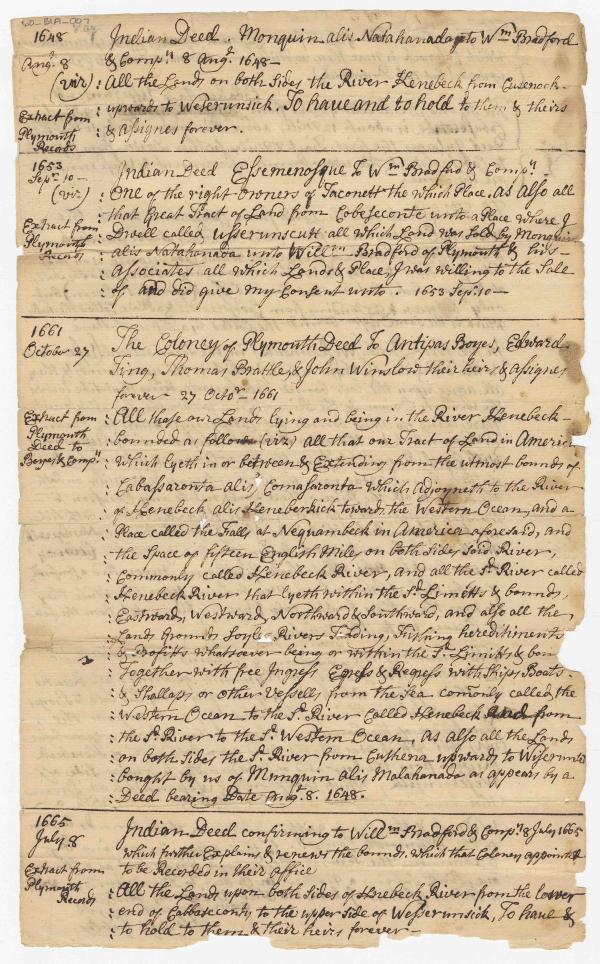 1648 Indian Deed. Monquin alis Natahanada to Wm Bradford
Augt. 8 & Compy. 8 Augt. 1648—
(viz) : All the Lands on both Sides the River Henebeck from Cusenock
upwards to Weserunsick. To have and to hold to them & theirs
Extract from Plymouth Records : & assignes forever.
1653 Indian Deed Essemenosque To Wm Bradford & Compy.
Sepr. 10— One of the right owners of Taconett the which Place, as also all
(viz) : that Great Tract of Land from Cobeseconte unto a Place where I
Extract from Plymouth Records : Dwell called usserunscutt all which Land was Sold by Monquin
alis Natahanada unto Willm. Bradford of Plymouth & his
: associates all which Lands & Place, I was willing to the Sale
: of and did give my Consent unto. 1653 Sep. 10—
1661
October 27 The Coloney of Plymouth Deed To Antipas Boyes, Edward
Ting, Thomas Brattle, & John Winslow their heirs & assignes
forever 27 Octor. 1661
Extract from Plymouth Deed to Boyes & Compy. : All those our Lands lying and being in the River Henebeck—
: bounded as follow (viz) all that our Tract of Land in America
: Which lyeth in or between & Extending from the utmost bounds of
: Cabassaronta alis Comassaronta which adjoyneth to the River
: of Henebeck alis Heneberkick towards the Western Ocean, and a
: Place called the Falls at Nequambeck in America aforesaid, and
: the Space of fifteen English Miles on both Sides Said River,
: Commonly called Henebeck River, and all the Sd. River called
: Henebeck River that lyeth within the Sd. Limitts & bounds,
: Eastward, Westward, Northward & Southward, and also all the
: Lands Grounds Soyls Rivers Trading, Fishing hereditiments
: & Profitts whatsoever being or within the Sd. Limitts & boun
: Together with free Ingress Egress & Regress with Ships Boats
: & Shallops or other Vessells from the Sea comonly called the
: Western Ocean to the Sd. River Called Henebeck and from
: the Sd. River to the Sd. Western Ocean, As also all the Lands
: on both Sides the Sd. River from Cushena upwards to Wiserunts
: bought by us of Munquin alis Malahanada as appears by a
: Deed bearing Date Augt. 8. 1648.
1665
July 8 Indian Deed confirming to Willm Bradford & Compy. 8 July 1665
: which further Explains & renews the bounds. which that Coloney appoints
Extract from Plymouth Records : to be Recorded in their office
: All the Lands upon both Sides of Henebeck River from the lower
: end of Cabbaseconty to the upper Side of Wesserunsick, To have &
: to hold to them & their heirs forever—